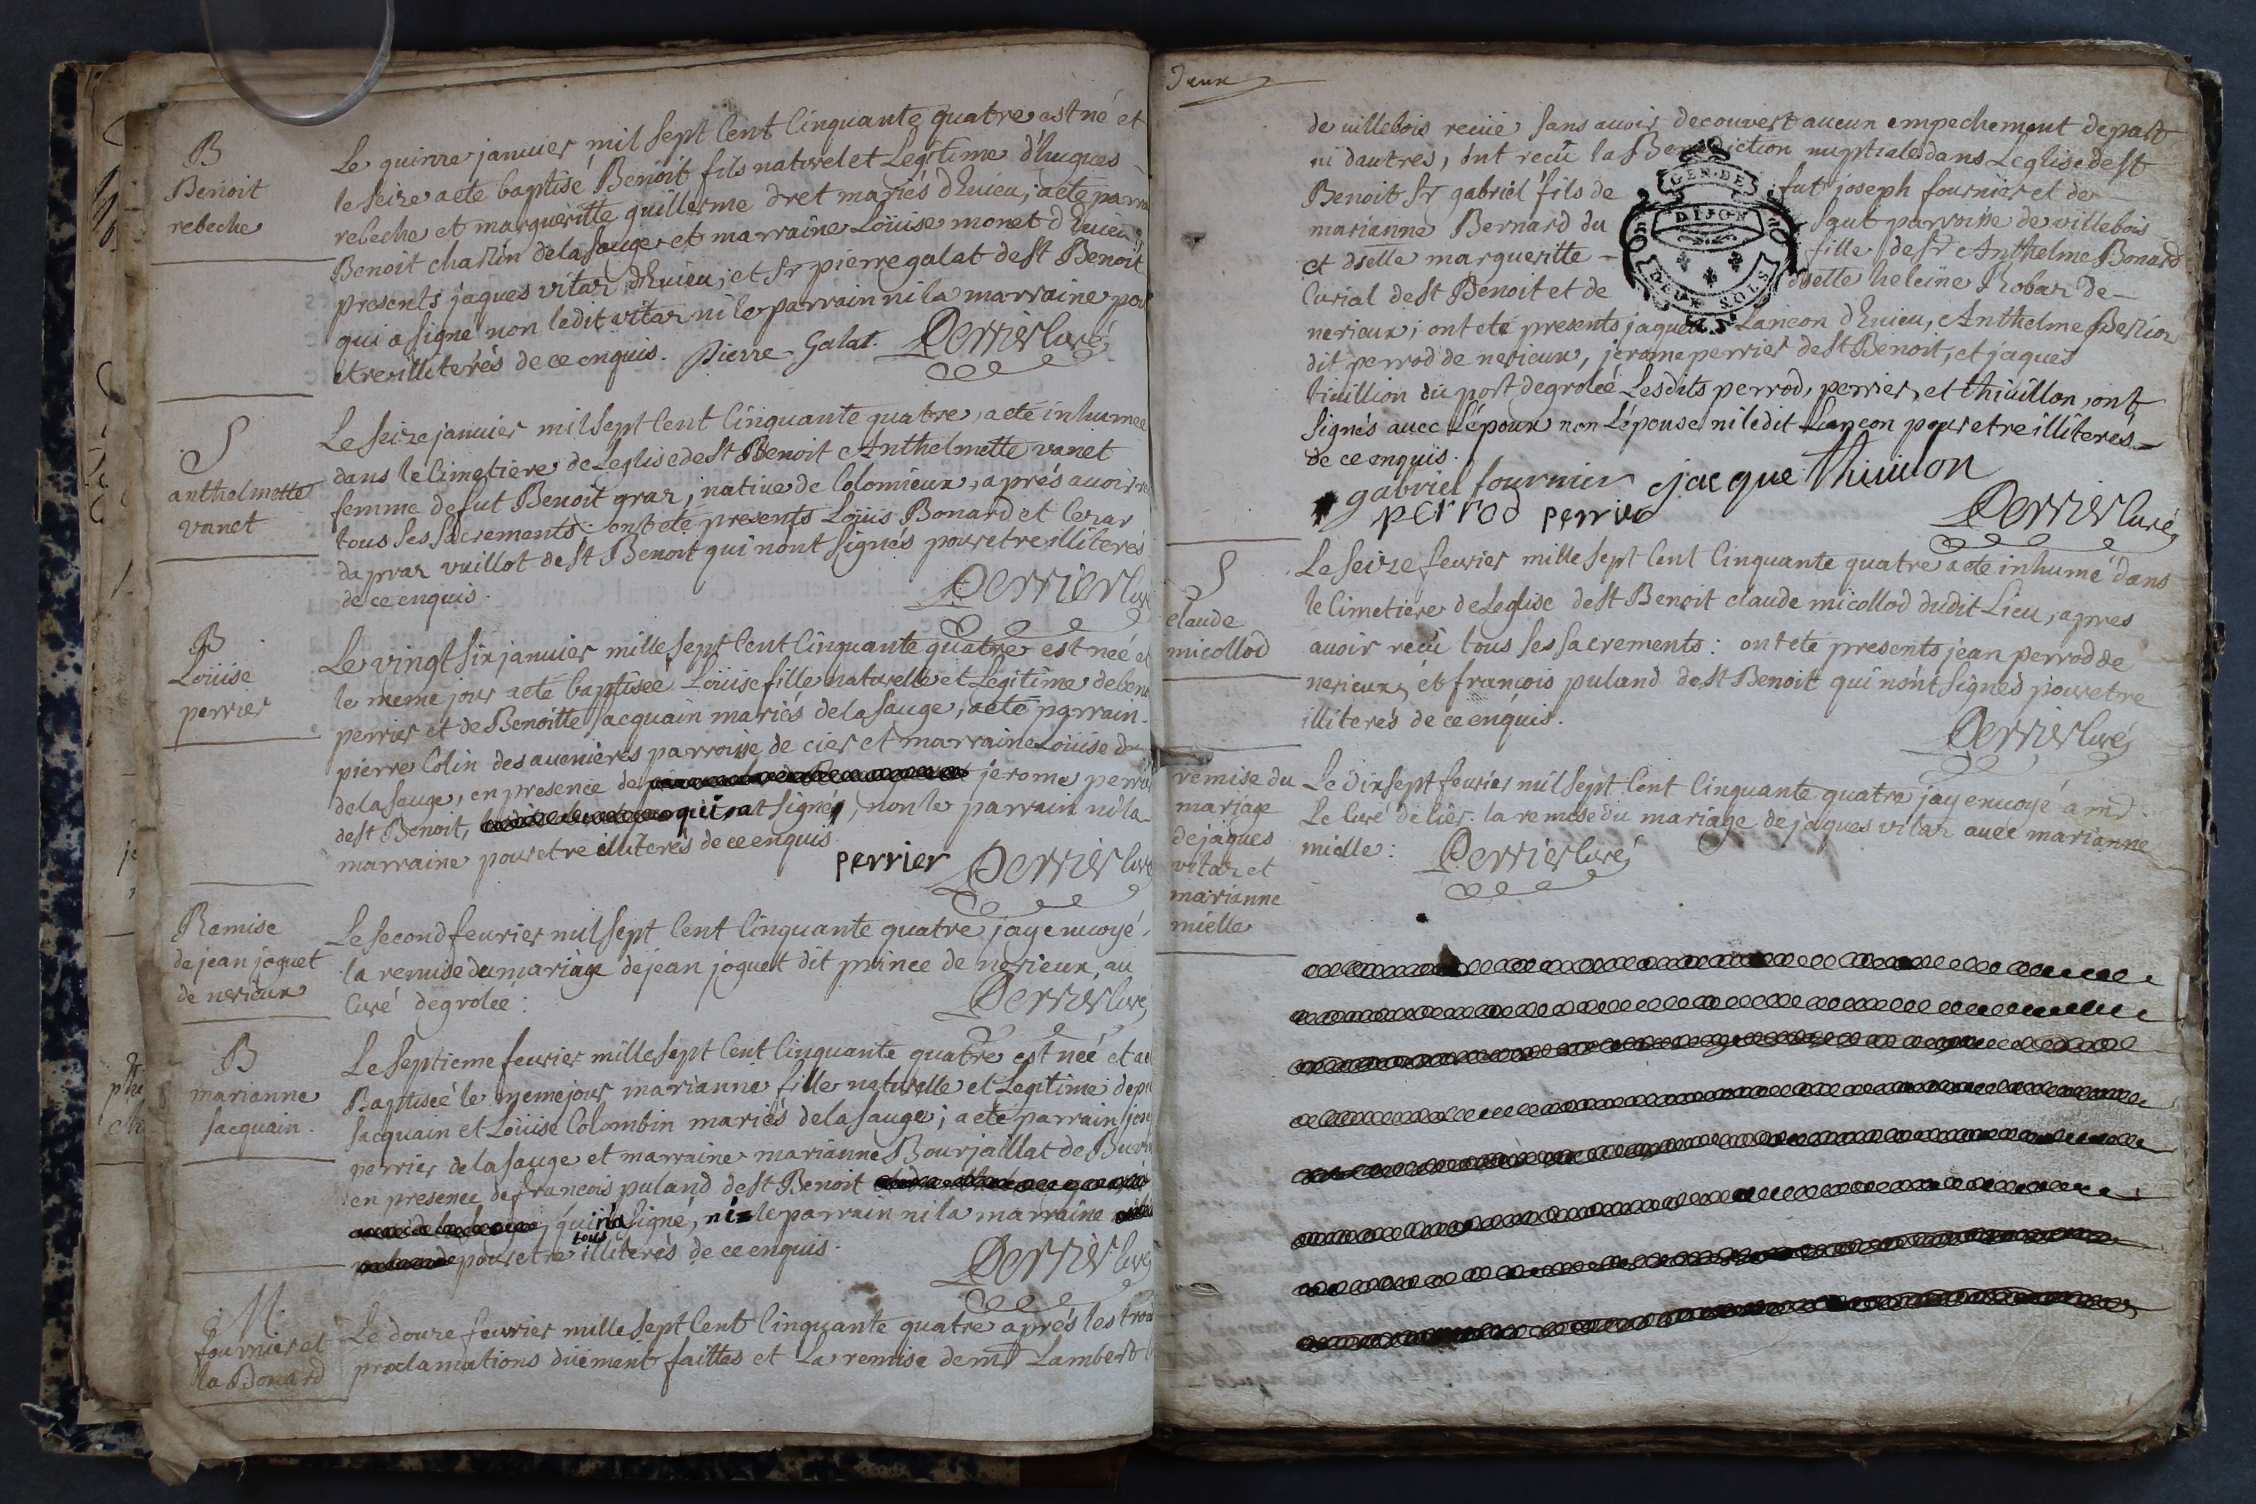 B
Benoit
rebeche
Le quinze januier mil sept Cent Cinquante quatre est né et
le seize a eté baptisé Benoit fils naturel et Legitime d'hugues
rebeche et marguèritte guillerme dret mariés d'Enieu; a eté parra
Benoit chastin de la sauge et marraine Loüise monet d'Enieu;
presents jaques vitaz d'Enieu, et sr pierre galat de st Benoit
qui a signé non ledit vitaz ni le parrain ni la marraine pou
etre illiterés de ce enquis. Pierre Galat. Perrier Curé
S
anthelmette
vanet
Le seize januier mil sept Cent Cinquante quatre, a eté inhumeé
dans le Cimetiere de Leglise de st Benoit Anthelmette vanet
femme de fut Benoit graz, natiue de Colomieux, aprés auoir re
tous ses sacrements: ont eté presents Loüis Bonard et Cezar
da praz vuillot de st Benoit qui n'ont signés pour étre illiterés
de ce enquis. Perrier Cur
B
Loüise
perrier
Le vingt six januier mille sept Cent Cinquante quatre est neé et
le meme jour a eté baptiseé Loüise fille naturelle et Legitime de ben
perrier et de Benoitte sacquain mariés de la sauge, a eté parrain
pierre Colin des auenières parroisse de cier et marraine Loüise du
de la sauge, en presence de jerome perrie
de st Benoit, qui, at signé, non le parrain ni la
marraine pour etre illiterés de ce enquis
perrier Perrier Curé
Remise
de jean joquet
de nerieux
Le second feurier mil sept Cent Cinquante quatre jay enuoyé
la remise du mariage de jean joquet dit prince de nerieux, au
Curé de groleé: Perrier Curé
B
marianne
sacquain.
Le septieme feurier mille sept Cent Cinquante quatre est neé et a e
Baptiseé le meme jour marianne fille naturelle et Legitime de pi
sacquain et Loüise Colombin mariés de la sauge; a eté parrain jose
perrier de la sauge et marraine marianne Bourjaillat de
en presence de francois puland de st Benoit
qui n'a signé, ni le parrain ni la marraine
pour etre tous illiterés de ce enquis.
Perrier Curé
M
fournier et
la Bonard
Le douze feurier mille sept Cent Cinquante quatre aprés les trois
proclamations düement faittes et La remise de mr Lambert
Deux
de villebois reciie sans auoir decouvert aucun empechement de part
ni dautres, ont recû la Benediction nuptiale dans Leglise de st
Benoit sr gabriel fils de fut joseph fournier et de
marianne Bernard du saut parroisse de villebois
et dselle margueritte fille de sr Anthelme Bonard
Curial de st Benoit et de dselle heleine Robaz de
nerieux; ont eté presents jaques Lancon d'Enieu, Anthelme
dit perrod de nerieux, jerome perrier de st Benoit, et jaques
tiuillion du port de groleé Lesdits perrod, perrier, et thiuillon, ont
signés auec L'époux non L'épouse ni ledit Lançon pour etre illiterés
de ce enquis.
gabriel fournier jacque thiuilon
perrod perrier Perrier Curé
GEN. DE
DIJON
DEUX SOLS
S
claude
micollod
Le seize feurier mille sept Cent Cinquante quatre a eté inhumé dans
le Cimetiere de Leglise de st Benoit claude micollod dudit Lieu, apres
auoir reçû tous ses sacrements: ont eté presents jean perrod de
nerieux, et françois puland de st Benoit qui n'ont signés pour etre
illiterés de ce enquis.
Perrier Curé
remise du
mariage
de jaques
vitaz et
marianne
mielle
Le dix sept feurier mil sept Cent Cinquante quatre jay enuoyé à mr
Le Curé de Ciér la remise du mariage de jaques vitaz auec marianne
mielle: Perrier Curé